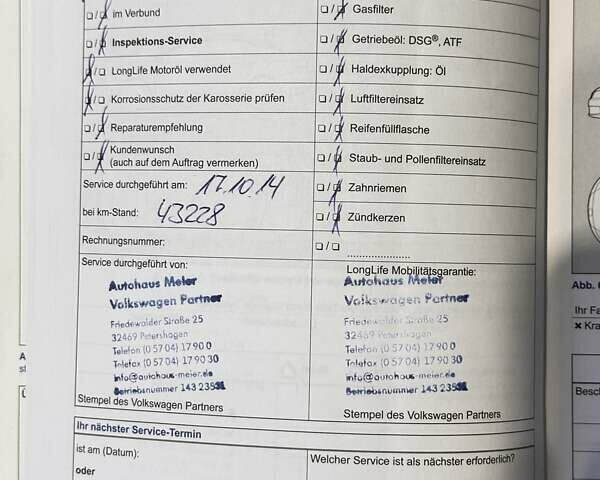 ❏ / ❏ im Verbund
❏ / ❏ Gasfilter
❏ / ❏ Inspektions-Service
❏ / ❏ Getriebeöl: DSG®, ATF
❏ / ❏ LongLife Motoröl verwendet
❏ / ❏ Haldexkupplung: Öl
❏ / ❏ Korrosionsschutz der Karosserie prüfen
❏ / ❏ Luftfiltereinsatz
❏ / ❏ Reparaturempfehlung
❏ / ❏ Reifenfüllflasche
❏ / ❏ Kundenwunsch
(auch auf dem Auftrag vermerken)
❏ / ❏ Staub- und Pollenfiltereinsatz
Service durchgeführt am: 17.10.14
❏ / ❏ Zahnriemen
bei km-Stand: 43228
❏ / ❏ Zündkerzen
Rechnungsnummer:
❏ / ❏ ......................
Service durchgeführt von:
Autohaus Meier
Volkswagen Partner
Friedewalder Straße 25
32469 Petershagen
Telefon (0 57 04) 17 90 0
Telefax (0 57 04) 17 90 30
info@autohaus-meier.de
Betriebsnummer 143 23531
Stempel des Volkswagen Partners
LongLife Mobilitätsgarantie:
Autohaus Meier
Volkswagen Partner
Friedewalder Straße 25
32469 Petershagen
Telefon (0 57 04) 17 90 0
Telefax (0 57 04) 17 90 30
info@autohaus-meier.de
Betriebsnummer 143 23531
Stempel des Volkswagen Partners
Ihr nächster Service-Termin
ist am (Datum):
oder
Welcher Service ist als nächster erforderlich?
Abb.
Ihr Fa
× Kra
Besch